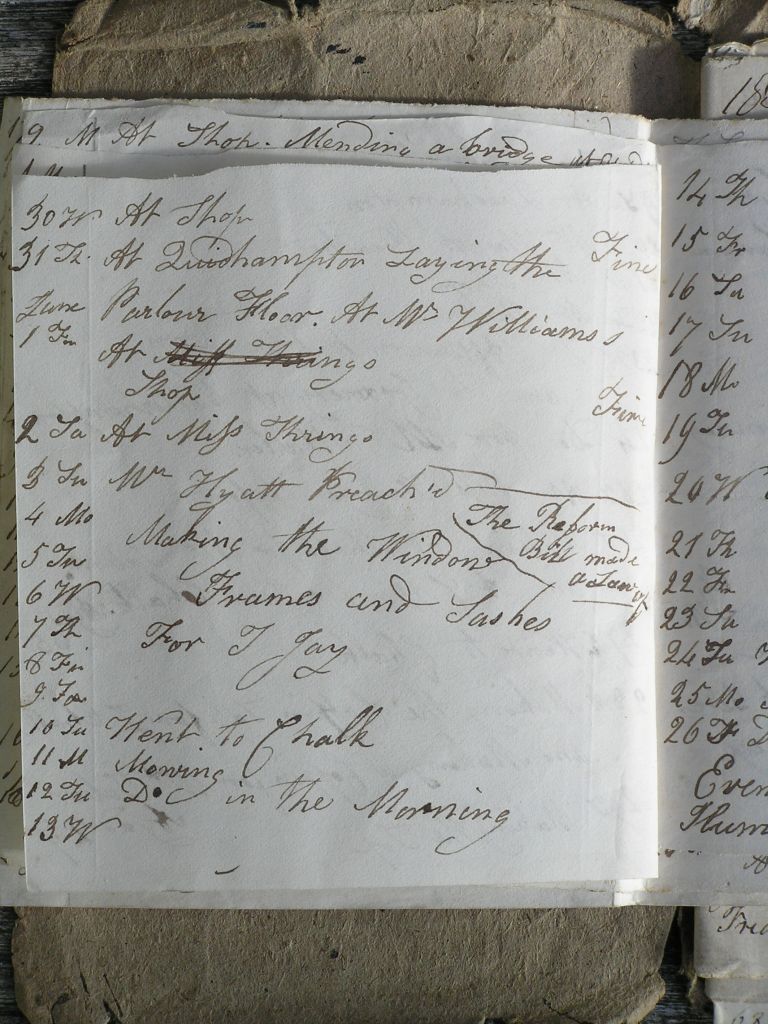 9. M At Shop. Mending a bridge at
30 W At Shop
31 Th. At Quidhampton Laying the Fine
June Parlour Floor. At Mrs Williams's
1 Fr
At Miss Thringo
Shop Fine
2 Sa At Miss Thringo
3 Su Mr Hyatt Preach'd
4 Mo Making the Window
The Reform
Bill made
a Law of
5 Tu
6 W Frames and Sashes
7 Th For J Jay
8 Fri
9. Sa
10 Su Went to Chalk
11 M Mowing
12 Tu Do in the Morning
13 W
18
14 Th
15 Fr
16 Sa
17 Su
18 Mo
19 Tu
20 W
21 Th
22 Fr
23 Sa
24 Su
25 Mo
26 D
Even